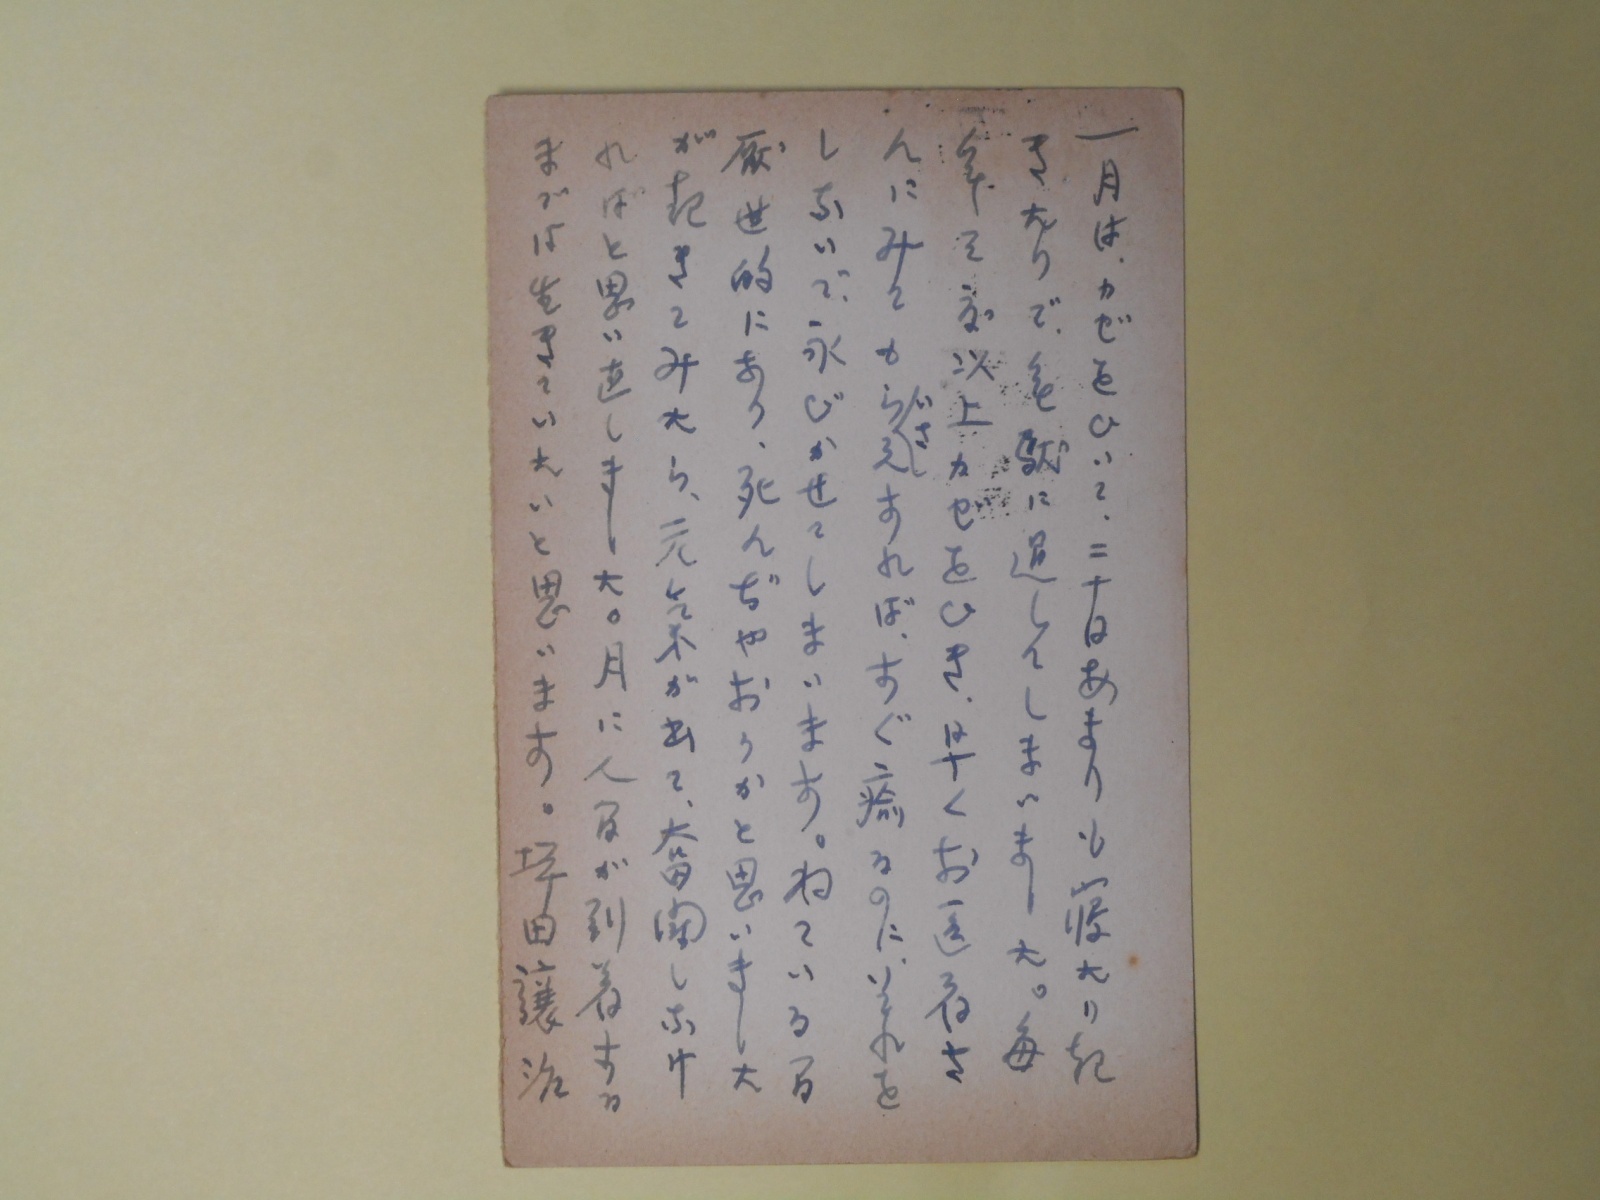 一月は、カゼをひいて、二十日あまりも寝たり起
きたりで、無駄に過してしまいました。毎
年三度以上カゼをひき、早くお医者さ
んにみてもらいさえすれば、すぐ癒るのに、それを
しないで、永びかせてしまいます。ねている間
厭世的になり、死んぢやおうかと思いました
が起きてみたら、元気が出て、奮闘しなけ
ればと思い直しました。月に人間が到着する
までは生きていたいと思います。坪田讓治